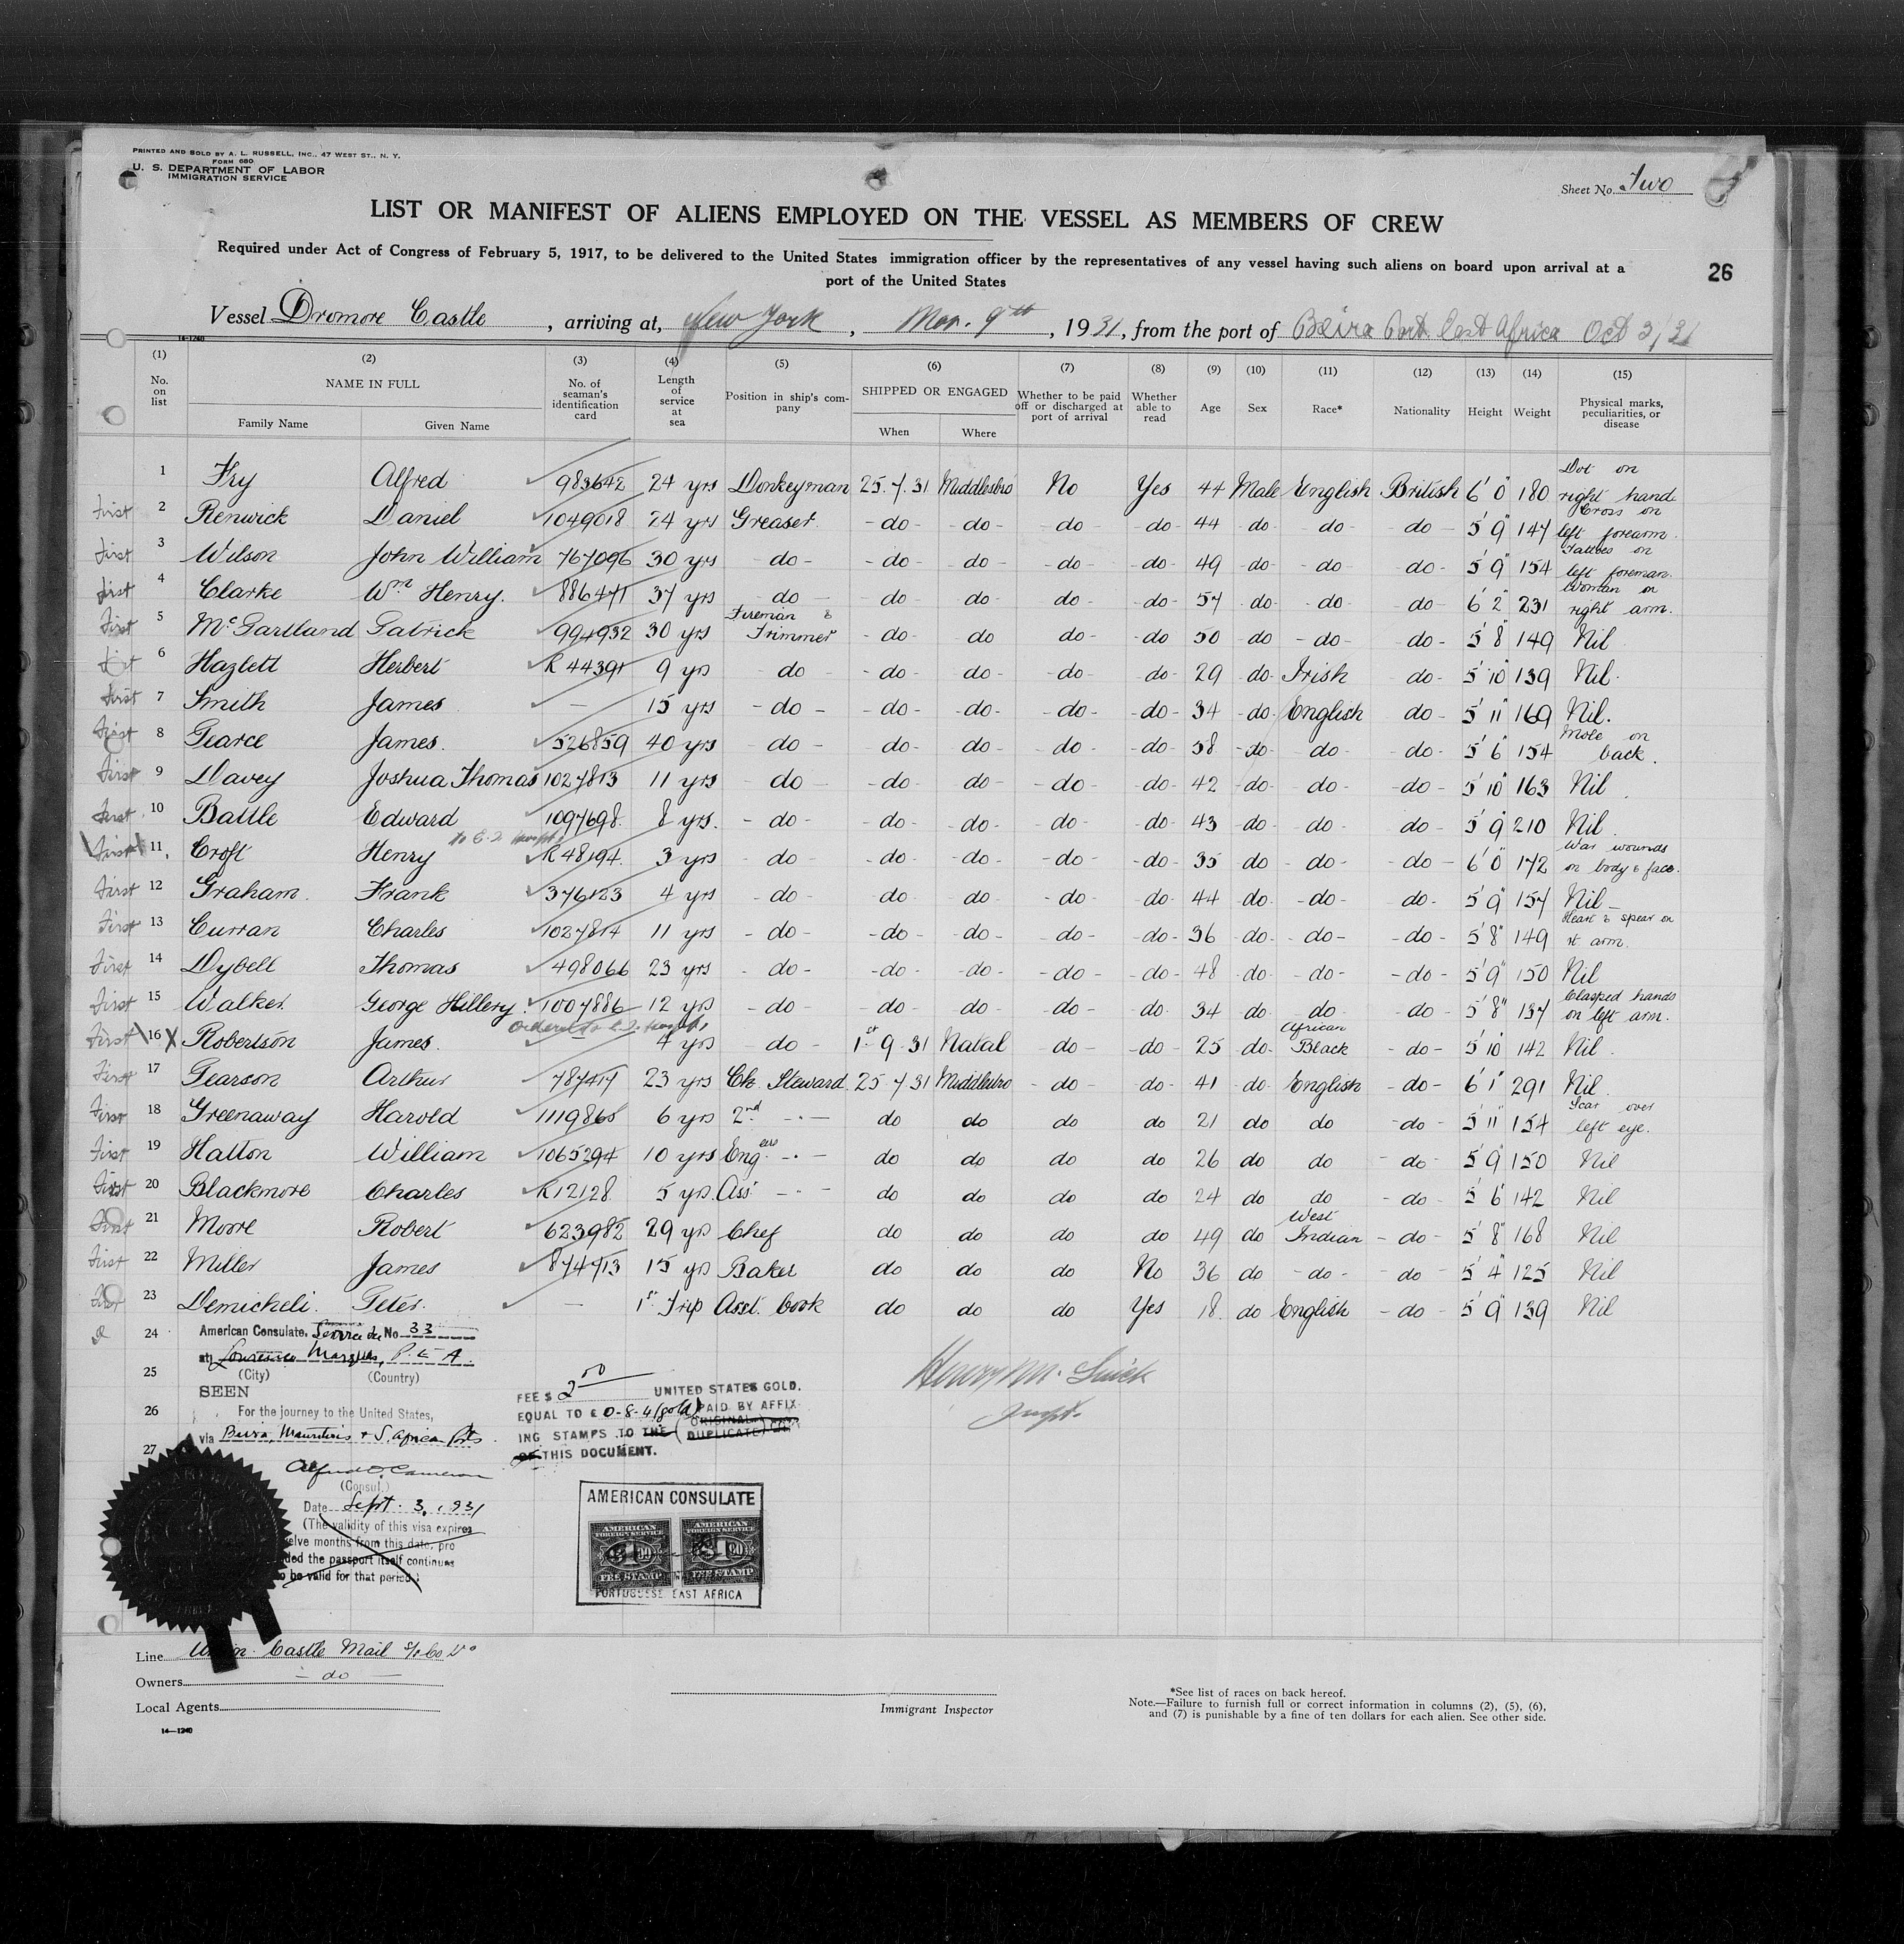 PRINTED AND SOLD BY A. L. RUSSELL, INC., 47 WEST ST., N. Y.
FORM 680
U. S. DEPARTMENT OF LABOR
IMMIGRATION SERVICE
Sheet No. Two
LIST OR MANIFEST OF ALIENS EMPLOYED ON THE VESSEL AS MEMBERS OF CREW
Required under Act of Congress of February 5, 1917, to be delivered to the United States immigration officer by the representatives of any vessel having such aliens on board upon arrival at a
port of the United States
26
Vessel Dromore Castle, arriving at, New York, Nov. 9th, 1931, from the port of Beira Port. East Africa Oct 3/31
14-1240
(1) (2) (3) (4) (5) (6) (7) (8) (9) (10) (11) (12) (13) (14) (15)
No. on list NAME IN FULL Family Name Given Name No. of seaman's identification card Length of service at sea Position in ship's company SHIPPED OR ENGAGED When Where Whether to be paid off or discharged at port of arrival Whether able to read Age Sex Race* Nationality Height Weight Physical marks, peculiarities, or disease
1 Fry Alfred 983642 24 yrs Donkeyman 25.7.31 Middlesbro No Yes 44 Male English British 6' 0" 180 Dot on right hand
First 2 Renwick Daniel 1049018 24 yrs Greaser - do - - do - - do - - do - 44 do - do - do 5' 9" 147 Cross on left forearm
First 3 Wilson John William 767096 30 yrs - do - - do - - do - - do - - do - 49 - do - - do - do - 5' 9" 154 Tattoes on left foreman.
First 4 Clarke Wm Henry. 886471 37 yrs do do - do - - do - - do - 57 do - do - do - 6' 2" 231 Woman on right arm.
First 5 McGartland Patrick 994932 30 yrs Fireman & Trimmer - do - do do - do 50 - do - do - - do - 5' 8" 149 Nil
First 6 Hazlett Herbert R 44391 9 yrs do - do - - do - - do - - do - 29 - do - Irish do - 5' 10" 139 Nil.
First 7 Smith James — 15 yrs - do - - do - - do - - do - - do - 34 - do - English do - 5' 11" 169 Nil.
First 8 Pearce James. 526859 40 yrs - do - - do - - do - - do - - do 58 - do - - do - - do - 5' 6" 154 Mole on back.
First 9 Davey Joshua Thomas 1027813 11 yrs - do - do - do - - do - - do - 42 - do - - do - - do - 5' 10" 163 Nil
First 10 Battle Edward 1097698 8 yrs. - do - - do - - do - - do - - do - 43 - do - - do - do - 5' 9" 210 Nil
First 11 Croft Henry R 48194 3 yrs - do - - do - - do - - do - - do - 35 do - do - - do - 6' 0" 172 War wounds on body & face.
First 12 Graham Frank 376123 4 yrs - do - do - do - - do - - do - 44 - do - - do - do - 5' 9" 157 Nil -
First 13 Curran Charles 1027814 11 yrs - do - - do - - do - - do - - do - 36 - do - - do - - do - 5' 8" 149 Heart & spear on rt arm.
First 14 Dybell Thomas 498066 23 yrs - do - - do - - do - - do - - do - 48 do - - do - - do - 5' 9" 150 Nil
First 15 Walker George Hillery. 1007886 12 yrs - do - do - do - - do - - do 34 do do - do - 5' 8" 137 Clasped hands on left arm.
First 16 X Robertson James. — 4 yrs - do - 1st 9.31 Natal do - - do - 25 do - African Black - do - 5' 10" 142 Nil
First 17 Pearson Arthur 787417 23 yrs Ch. Steward 25.7.31 Middlesbro - do - do - 41 - do - English - do - 6' 1" 291 Nil
First 18 Greenaway Harold 1119865 6 yrs 2nd - " - do do do do 21 do do - do - 5' 11" 154 Scar over left eye.
First 19 Hatton William 1065294 10 yrs Engrs - " - do do do do 26 do do - do - 5' 9" 150 Nil
First 20 Blackmore Charles R12128 5 yrs Asst - " - do do do do 24 do do - do - 5' 6" 142 Nil
First 21 Moore Robert 623982 29 yrs Chef do do do do 49 do West Indian - do - 5' 8" 168 Nil
First 22 Miller James 874713 15 yrs Baker do do do No 36 do - do - - do - 5' 4" 125 Nil
First 23 Demicheli. Peter. — 1st Trip Asst. Cook do do do Yes 18 do English - do - 5' 9" 139 Nil
24
25
26
27
American Consulate, Service No 33
at Lourenco Marques, P. E. A.
(City) (Country)
SEEN
For the journey to the United States,
via Beira, Mauritius & S. African Pts
Alfred D. Cameron
(Consul.)
Date Sept. 3, 1931
(The validity of this visa expires
twelve months from this date, pro
vided the passport itself continues
to be valid for that period.)
FEE $ 2 00 UNITED STATES GOLD,
EQUAL TO £ 0-8-4 (gold) PAID BY AFFIX-
ING STAMPS TO THE (ORIGINAL DUPLICATE)
OF THIS DOCUMENT.
AMERICAN CONSULATE
AMERICAN FOREIGN SERVICE
$1.00
FEE STAMP
AMERICAN FOREIGN SERVICE
$1.00
FEE STAMP
PORTUGUESE EAST AFRICA
Line Union Castle Mail S/S Co Ld
Owners — do —
Local Agents
Immigrant Inspector
*See list of races on back hereof.
Note.—Failure to furnish full or correct information in columns (2), (5), (6),
and (7) is punishable by a fine of ten dollars for each alien. See other side.
14—1240